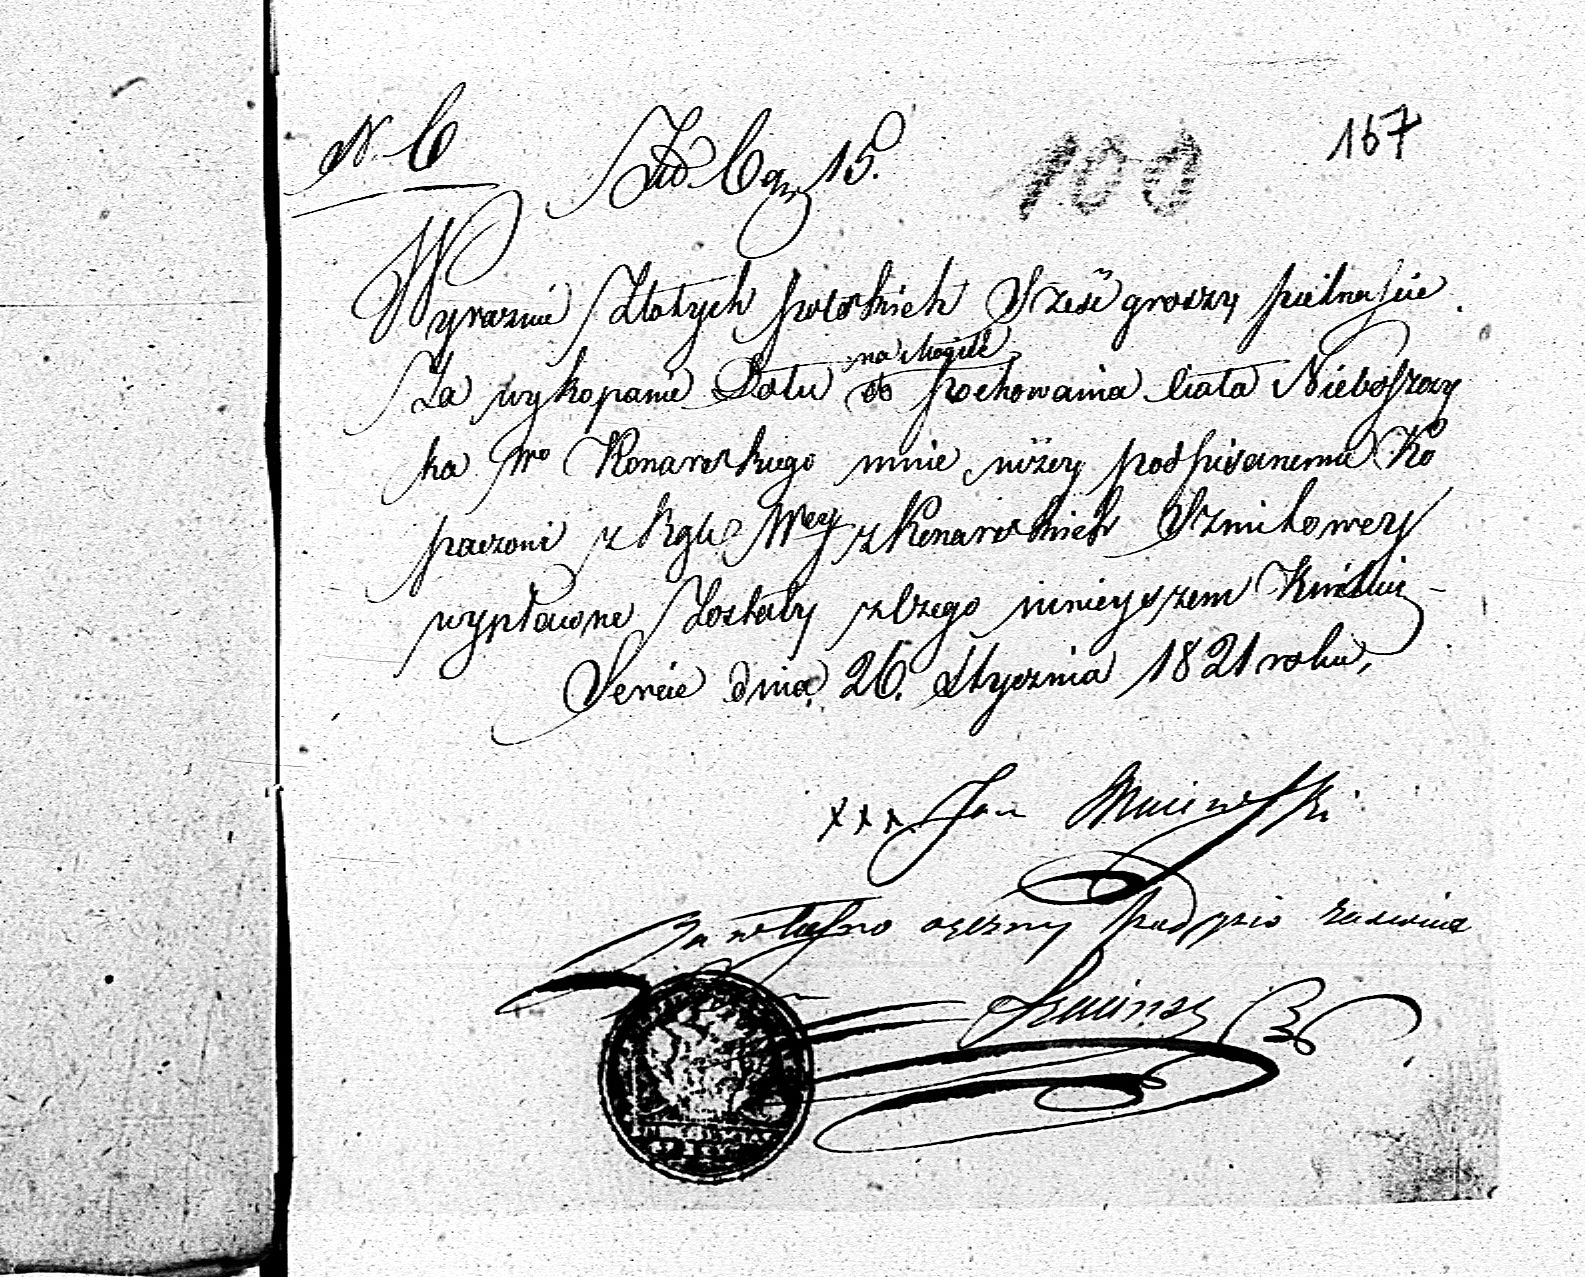 N. 6 Zło 6 gr. 15. 100 167
Wyraznie Złotych polskich Sześć groszy piętnaście.
Za wykopanie Dołu na Mogiłe
do pochowania ciała Nieboszczy
ka Wo Konarskiego mnie niżey podpisanemu Ko
paczowi z W^ey z Konarskich Szmitowey
wypłacone Zostały z czego ninieyszem Kwituię
Sercie dnia 26. Stycznia 1821 roku,
xxx Jan Maiewski
Za własno ręczny podpis